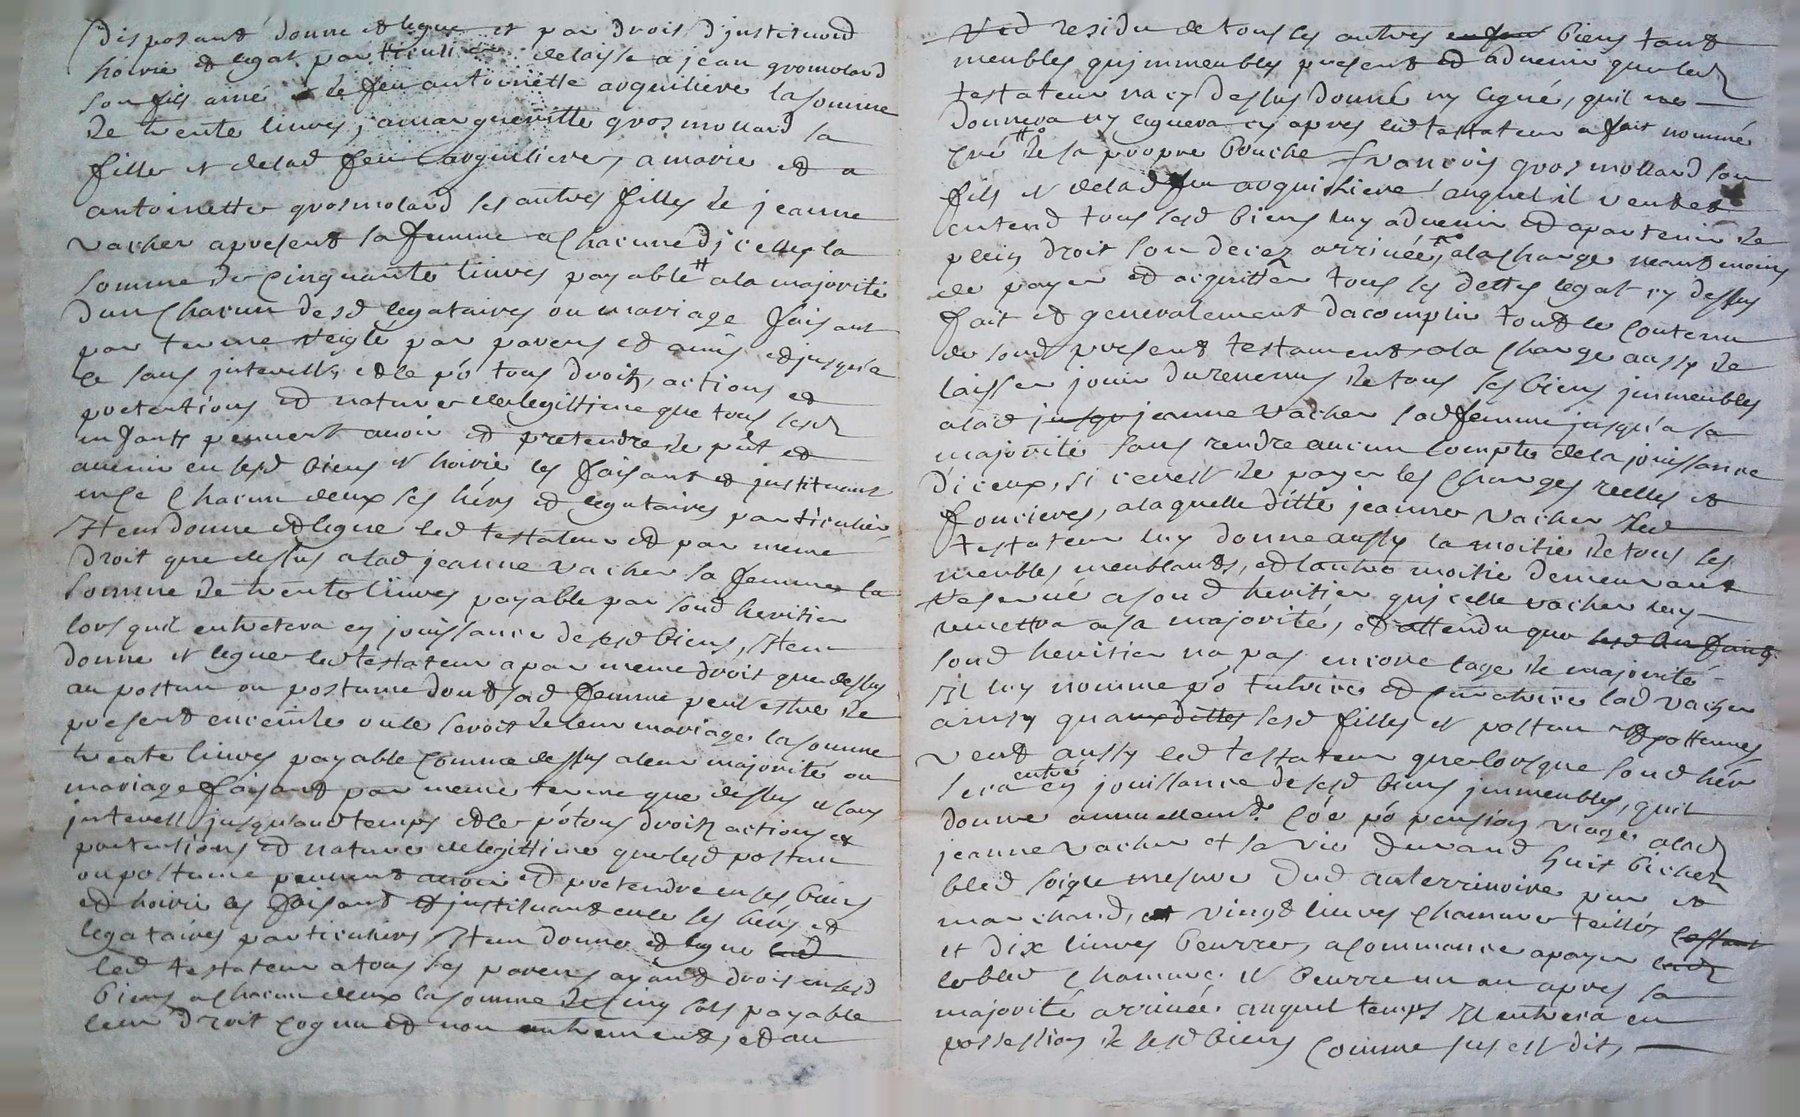 disposant donne et legue et par droit d'justitued
hoirie et legat particuli delaisse a jean gromolard
son fils ainé de feu antoinette arquiliere la somme
de trente livres, a margueritte grosmollard sa
fille et delad feu arquiliere, a marie et a
antoinette grosmolard ses autres filles de jeanne
vacher apresent sa femme a chacune d'jcelles la
somme de cinquante livres payable # a la majorité
dun chacun desd legataires ou mariage faisant
par terme reiglé par parens et amis et jusqu'a
ce sans jnterestz et ce po tous droitz, actions et
pretentions et nature de legittime que tous sesd
enfants peuvent avoir et pretendre de pnt et
avenir en sesd biens et hoirie les faisant et jnstituant
en ce chacun deux ses hérs et legataires particuliers
Item donne et legue led testateur et par meme
droit que dessus a lad jeanne vacher sa femme la
somme de trente livres payable par soud heritier
lors quil entretera en jouissance de sesd biens, Item
donne et legue led testateur a par meme droit que dessus
au postum ou postume dont sad femme peut estre de
present enceinte ou le seroit de leur mariage la somme
trente livres payable comme dessus a leur majorité ou
mariage faisant par meme terme que dessus et sans
jnterest jusquaud temps et ce po tous droitz actions et
pretentions et nature de legittime que led postum
ou postume peuvent avoir et pretendre en ses biens
et hoirie les faisant et jnstituant en ce ses hérs et
legataires particuliers Item donne et legue led
led testateur a tous ses parens ayant droit en sesd
biens a chacun deux la somme de cinq sols payable
leur droit cognu et non autrement, et au
resd residu de tous les autres enfan biens tant
meubles qu jmmeubles present et advenir que led
testateur na cy dessus donné ny legué, quil ne
donnera ny leguera cy apres led testateur a fait nommé
cré # de sa propre bouche francois grosmollard son
fils et delad feu arquiliere auquel il veut et
entend tous sesd biens luy advenir et apartenir de
plein droit son decez arrivée, a la charge neantmoins
de payer et acquitter tous les dettes legat cy dessus
fait et generalement dacomplir tout le contenu
de soud present testament a la charge aussy de
laisser jouir du revenus de tous ses biens jmmeubles
a lad jusqu jeanne vacher sad femme jusqu'a sa
majorité sans rendre aucun compte de la jouissance
d'iceux, si ce nest de payer les charges reelles et
foncieres, a laquelle ditte jeanne vacher led
testateur luy donne aussy la moitié de tous les
meubles meublants, et lautre moitié demeurant
reservé a soud heritier qu jcelle vacher luy
remettra a sa majorité, et attendu que lesd enfants
soud heritier na pas encore lage de majorité
Il luy nomme po tutrice et curatrice lad vacher
ainsy quauxdittes sesd filles et postum et postumes
veut aussy led testateur que lorsque soud hér
sera entré en jouissance de sesd biens jmmeubles, quil
donne annuellemt. coe po pension viage a lad
jeanne vacher et sa vie durand huit bichetz
bled soigle mesure dud auterrivoire pur et
marchand, et vingt livres chanvre teillés cessant
et dix livres beurre, a commance apayer lesd
led bled chanvre et beurre un an apres sa
majorité arrivée auquel temps Il entrera en
possession de sesd biens comme sus est dit,